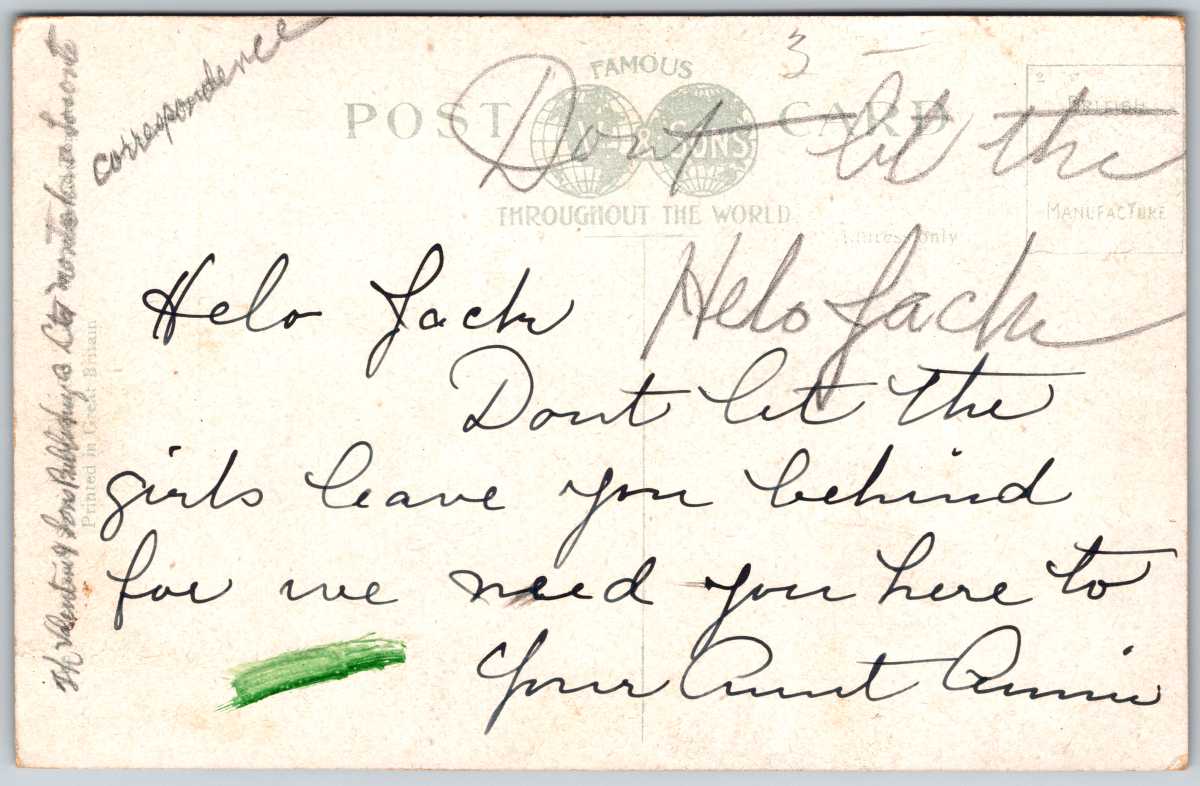 correspondence
3
FAMOUS
POST CARD
& SONS
Dont let the
BRITISH
MANUFACTURE
THROUGHOUT THE WORLD
Address only
Helo Jack
Helo Jack
Dont let the
girls leave you behind
for we need you here to
Your Aunt Annie
Printed in Great Britain
Valentine & Sons Publishing Co